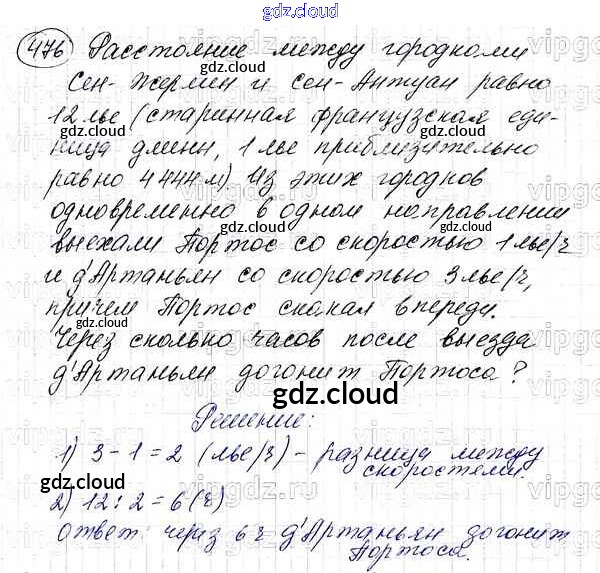 gdz.cloud
476 Расстояние между городками
gdz.cloud
Сен-Жермен и Сен-Антуан равно
12 лье (старинная французская еди-
gdz.cloud
ница длины, 1 лье приблизительно
равно 4 444 м) Из этих городков
gdz.cloud
одновременно в одном направлении
выехали Портос со скоростью 1 лье/ч
gdz.cloud
и д'Артаньян со скоростью 3 лье/ч,
причем Портос скакал впереди.
gdz.cloud
Через сколько часов после выезда
д'Артаньян догонит Портоса?
gdz.cloud
Решение:
1) 3 - 1 = 2 (лье/ч) - разница между
скоростями.
gdz.cloud
2) 12 : 2 = 6 (ч)
Ответ: через 6 ч д'Артаньян догонит
Портоса.
gdz.cloud